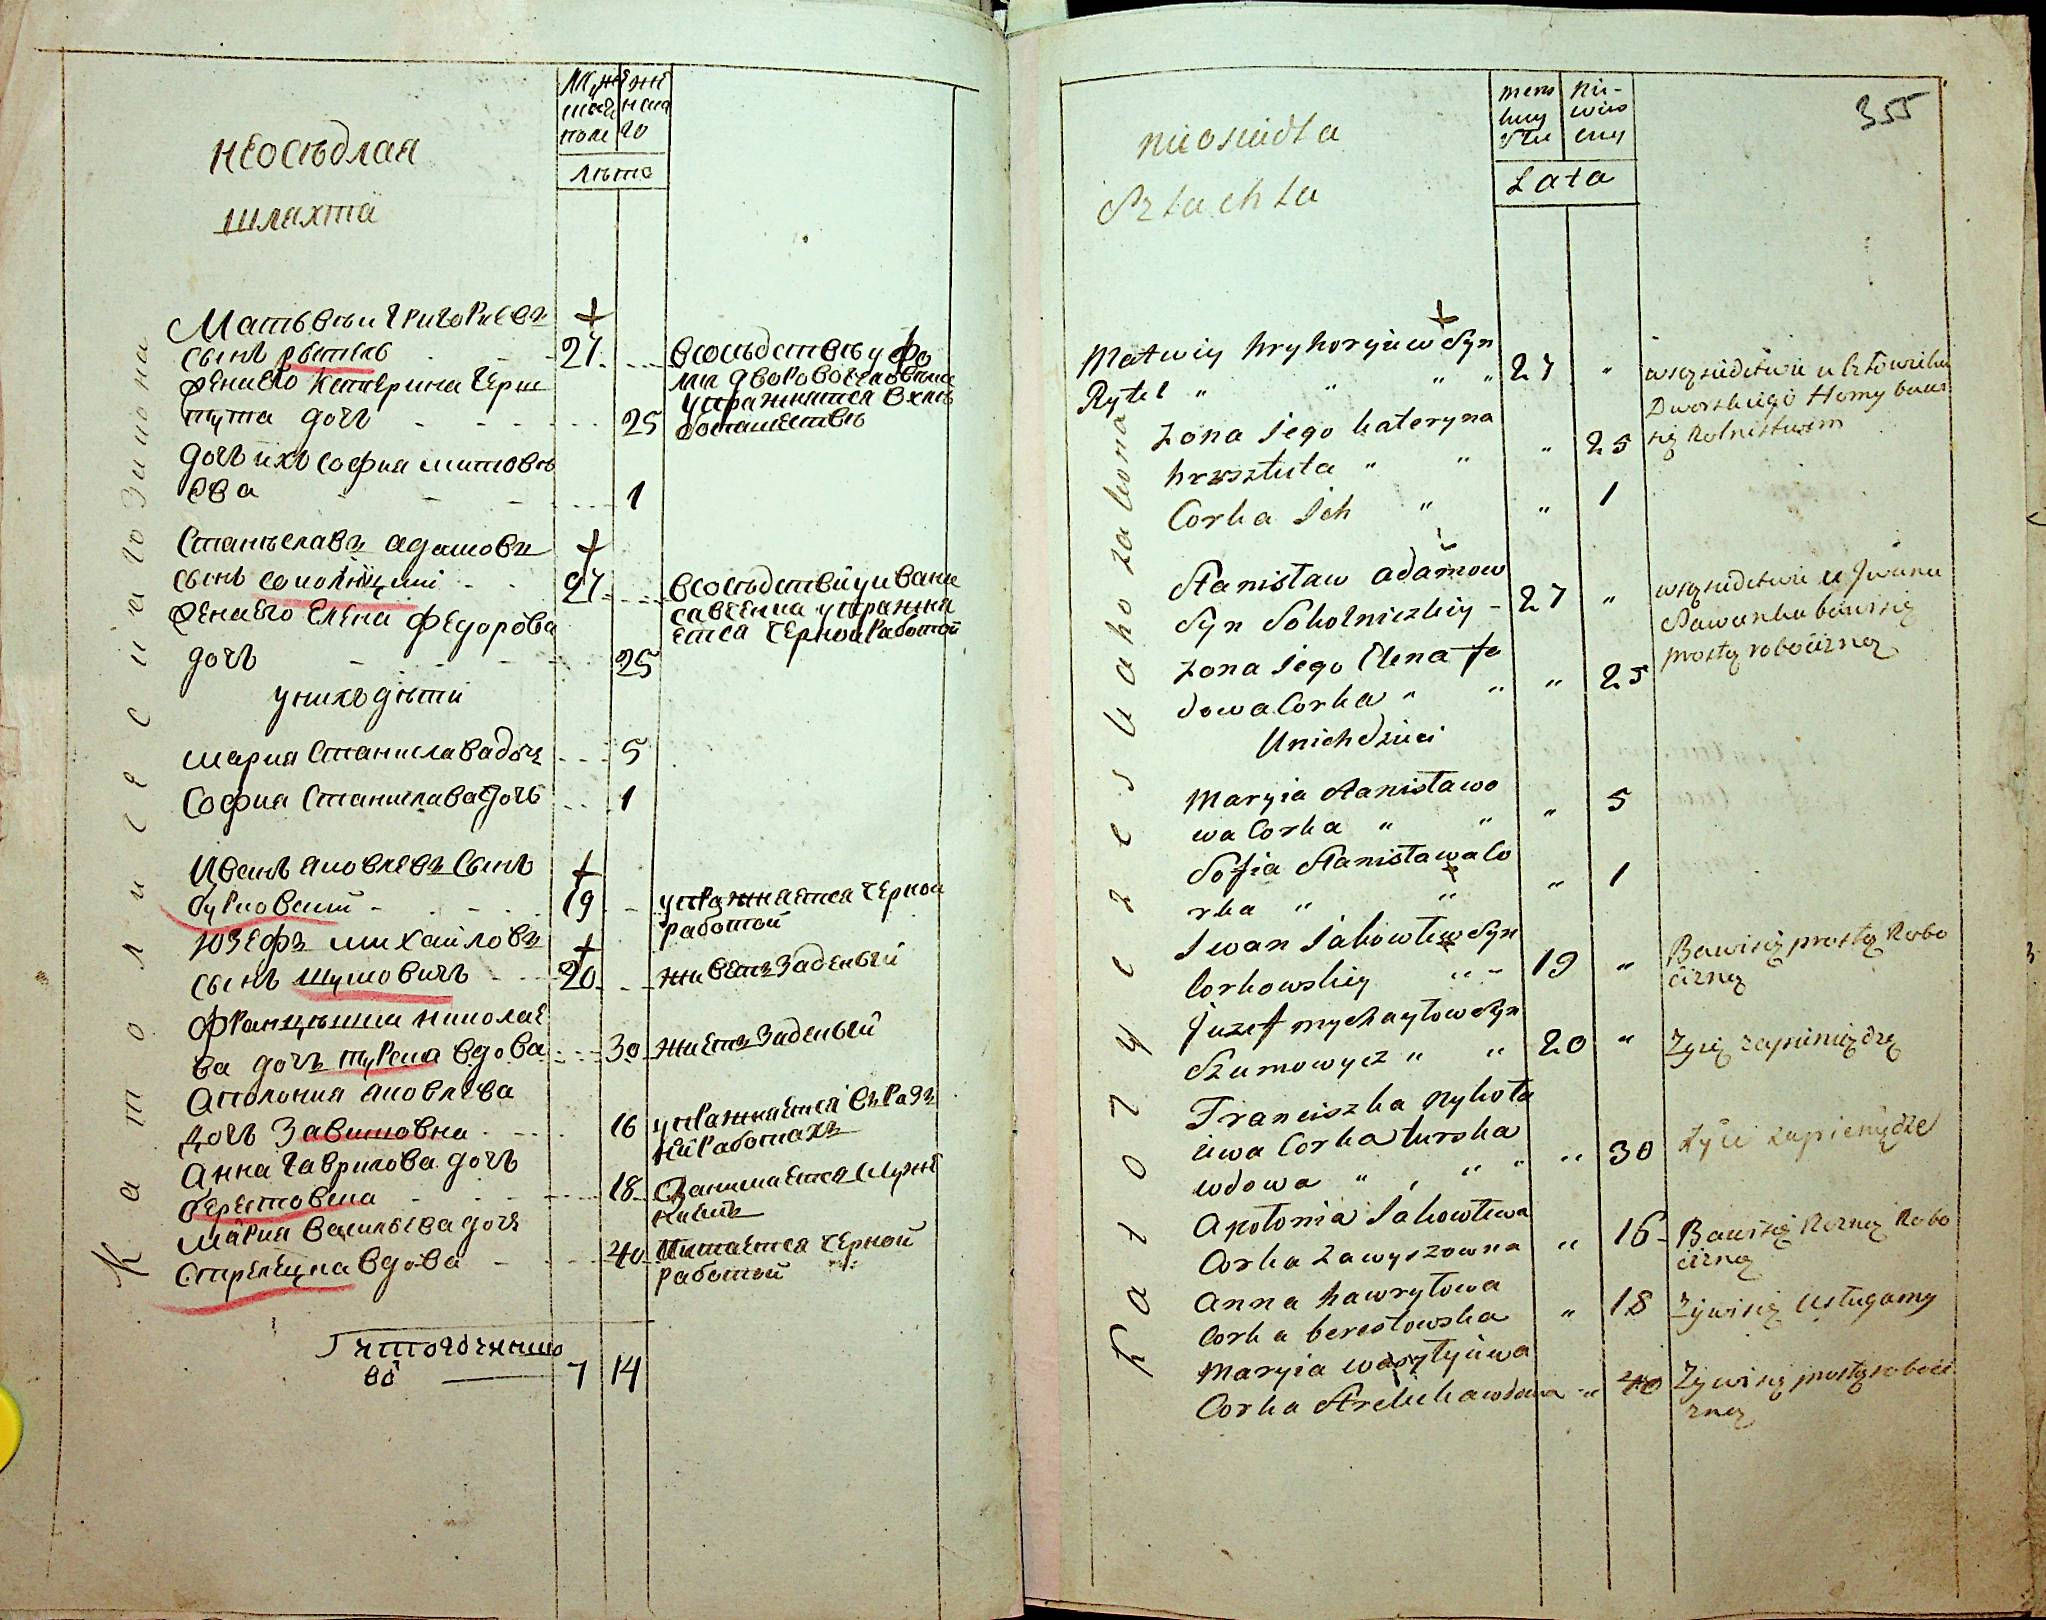 неосѣдлая
шляхта
Мужескаго поля
женскаго
Лѣта
Католическаго Закона
Матьвѣи Григориевъ
сынъ рытель 27 всосѣдствѣ у фо
ми дворовочеловѣка
упражнятся вхлѣ
бопашествѣ
женаего катерина Герш
тута дочь 25
дочь ихъ София матвѣ
ева 1
Станѣславъ адамовъ
сынъ соколницкий 27 всосѣдствѣ у ивана
савченка упражня
ется черной работой
женаего Елена Федорова
дочь 25
унихъ дѣти
мария Станиславадочъ 5
София Станиславадочь 1
Иванъ яковлевъ Сынъ
бурковский 19 упражняется черной
работой
Юзефъ михайловъ
сынъ шумовичъ 20 живетъ заденгый
францѣшка николае
ва дочъ турска вдова 30 живетъ заденгый
Аполония яковлева
дочь Завишовна 16 упражняется въ раз
ни работахъ
Анна гаврилова дочь
берестовска 18 Занимается служ
мария василѣва дочь
Стрелецка вдова 40 питается черной
работой
7 14
355
nieosiedła
Szlachta
Lata
Katolyczeskaho zakona
Matwiy hryhoryiew Syn
Rytel " " " " 27 " wsąsiedstwie u Człowieka
Dworskiego Homy bawi
się Rolnistwem
żona iego kateryna
hrzsztuta " " " 25
Corka Ich " " 1
Stanisław adamow
Syn Sokolniczkiy - 27 " wsąsiedstwie u Iwana
Sawenka bawisię
prostą robocizną
żona iego Elena fe
dowa Corka " " " 25
Unich dzieci
Maryia Stanisławo
wa Corka " " " 5
Sofia Stanisława Co
rka " " " 1
Iwan Jakowlew Syn
borkowskiy " - 19 " Bawisię prostą Robo
cizną
Juzef mychayłow Syn
Szumowycz " " 20 " Żyie zapieniędze
Franciszka nykoła
iwa Corka turska
wdowa " , " " " 30 Żyie zapieniędze
Apołonia Jakowlewa
Corka Zawyszowna " 16 - Bawisię Rozną Robo
cizną
Anna hawryłowa
Corka berestowska " 18 Żywisię usługamy
Maryia wasylyiewa
Corka Strelickawdowa " 40 Żywisię prostąroboci
zną
Katolyczeskaho zakona